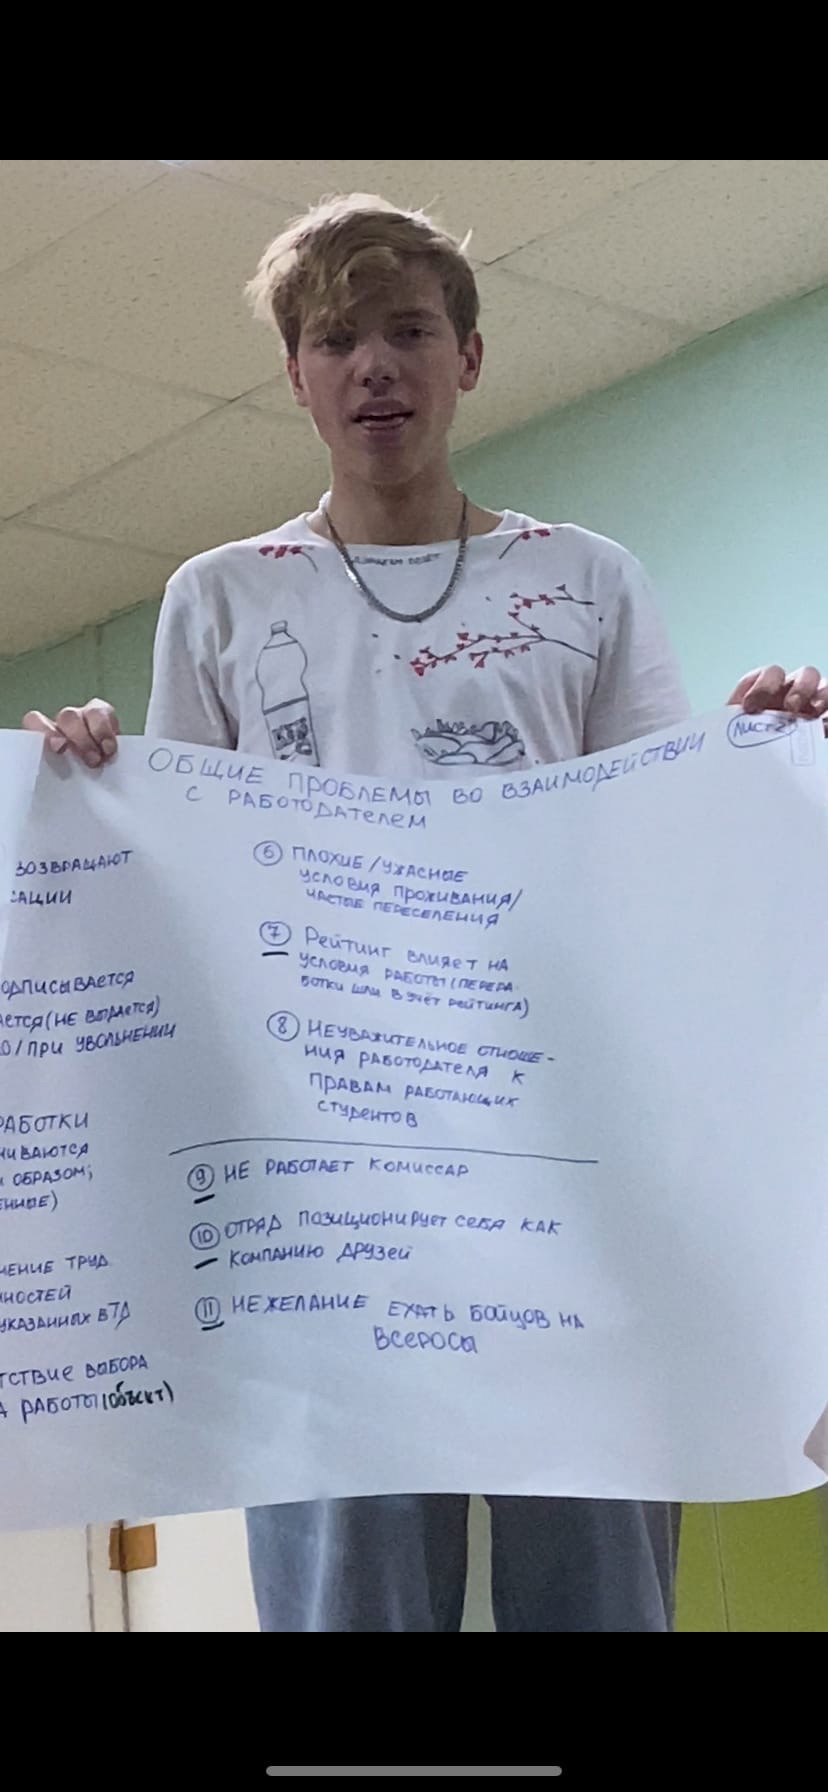 ЛИСТ 2
ОБЩИЕ ПРОБЛЕМЫ ВО ВЗАИМОДЕЙСТВИИ
С РАБОТОДАТЕЛЕМ
ВОЗВРАЩАЮТ
САЦИИ
ОДПИСЫВАЕТСЯ
АЕТСЯ (НЕ ВЫДАЕТСЯ)
О/ПРИ УВОЛЬНЕНИИ
РАБОТКИ
ЧИВАЮТСЯ
ОБРАЗОМ;
ЕННЫЕ)
НЕНИЕ ТРУД
НОСТЕЙ
УКАЗАННЫХ В ТД
ТСТВИЕ ВЫБОРА
А РАБОТЫ (объект)
6 ПЛОХИЕ/УЖАСНЫЕ
УСЛОВИЯ ПРОЖИВАНИЯ/
ЧАСТЫЕ ПЕРЕСЕЛЕНИЯ
7 РЕЙТИНГ ВЛИЯЕТ НА
УСЛОВИЯ РАБОТЫ (ПЕРЕРА-
БОТКИ ШЛИ В УЧЁТ РЕЙТИНГА)
8 НЕУВАЖИТЕЛЬНОЕ ОТНОШЕ-
НИЯ РАБОТОДАТЕЛЯ К
ПРАВАМ РАБОТАЮЩИХ
СТУДЕНТОВ
9 НЕ РАБОТАЕТ КОМИССАР
10 ОТРЯД ПОЗИЦИОНИРУЕТ СЕБЯ КАК
КОМПАНИЮ ДРУЗЕЙ
11 НЕЖЕЛАНИЕ ЕХАТЬ БОЙЦОВ НА
ВСЕРОСЫ